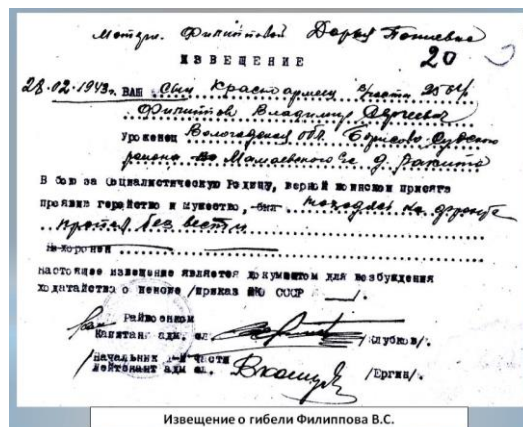 Матери. Филипповой Дарья
20
ИЗВЕЩЕНИЕ
28.02.1943г. ВАШ сын Красноармеец
Филиппов Владимир
Уроженец Вологодской обл. Борисово-Судского
района
В бою за Социалистическую Родину, верный воинской присяге
проявив геройство и мужество, был находясь на фронте
пропал без вести
Похоронен
Настоящее извещение является документом для возбуждения
ходатайства о пенсии /приказ НКО СССР
Райвоенком
Капитан адм. сл. /Клубков/.
Начальник 1-й части
Лейтенант адм сл. /Ергин/.
Извещение о гибели Филиппова В.С.